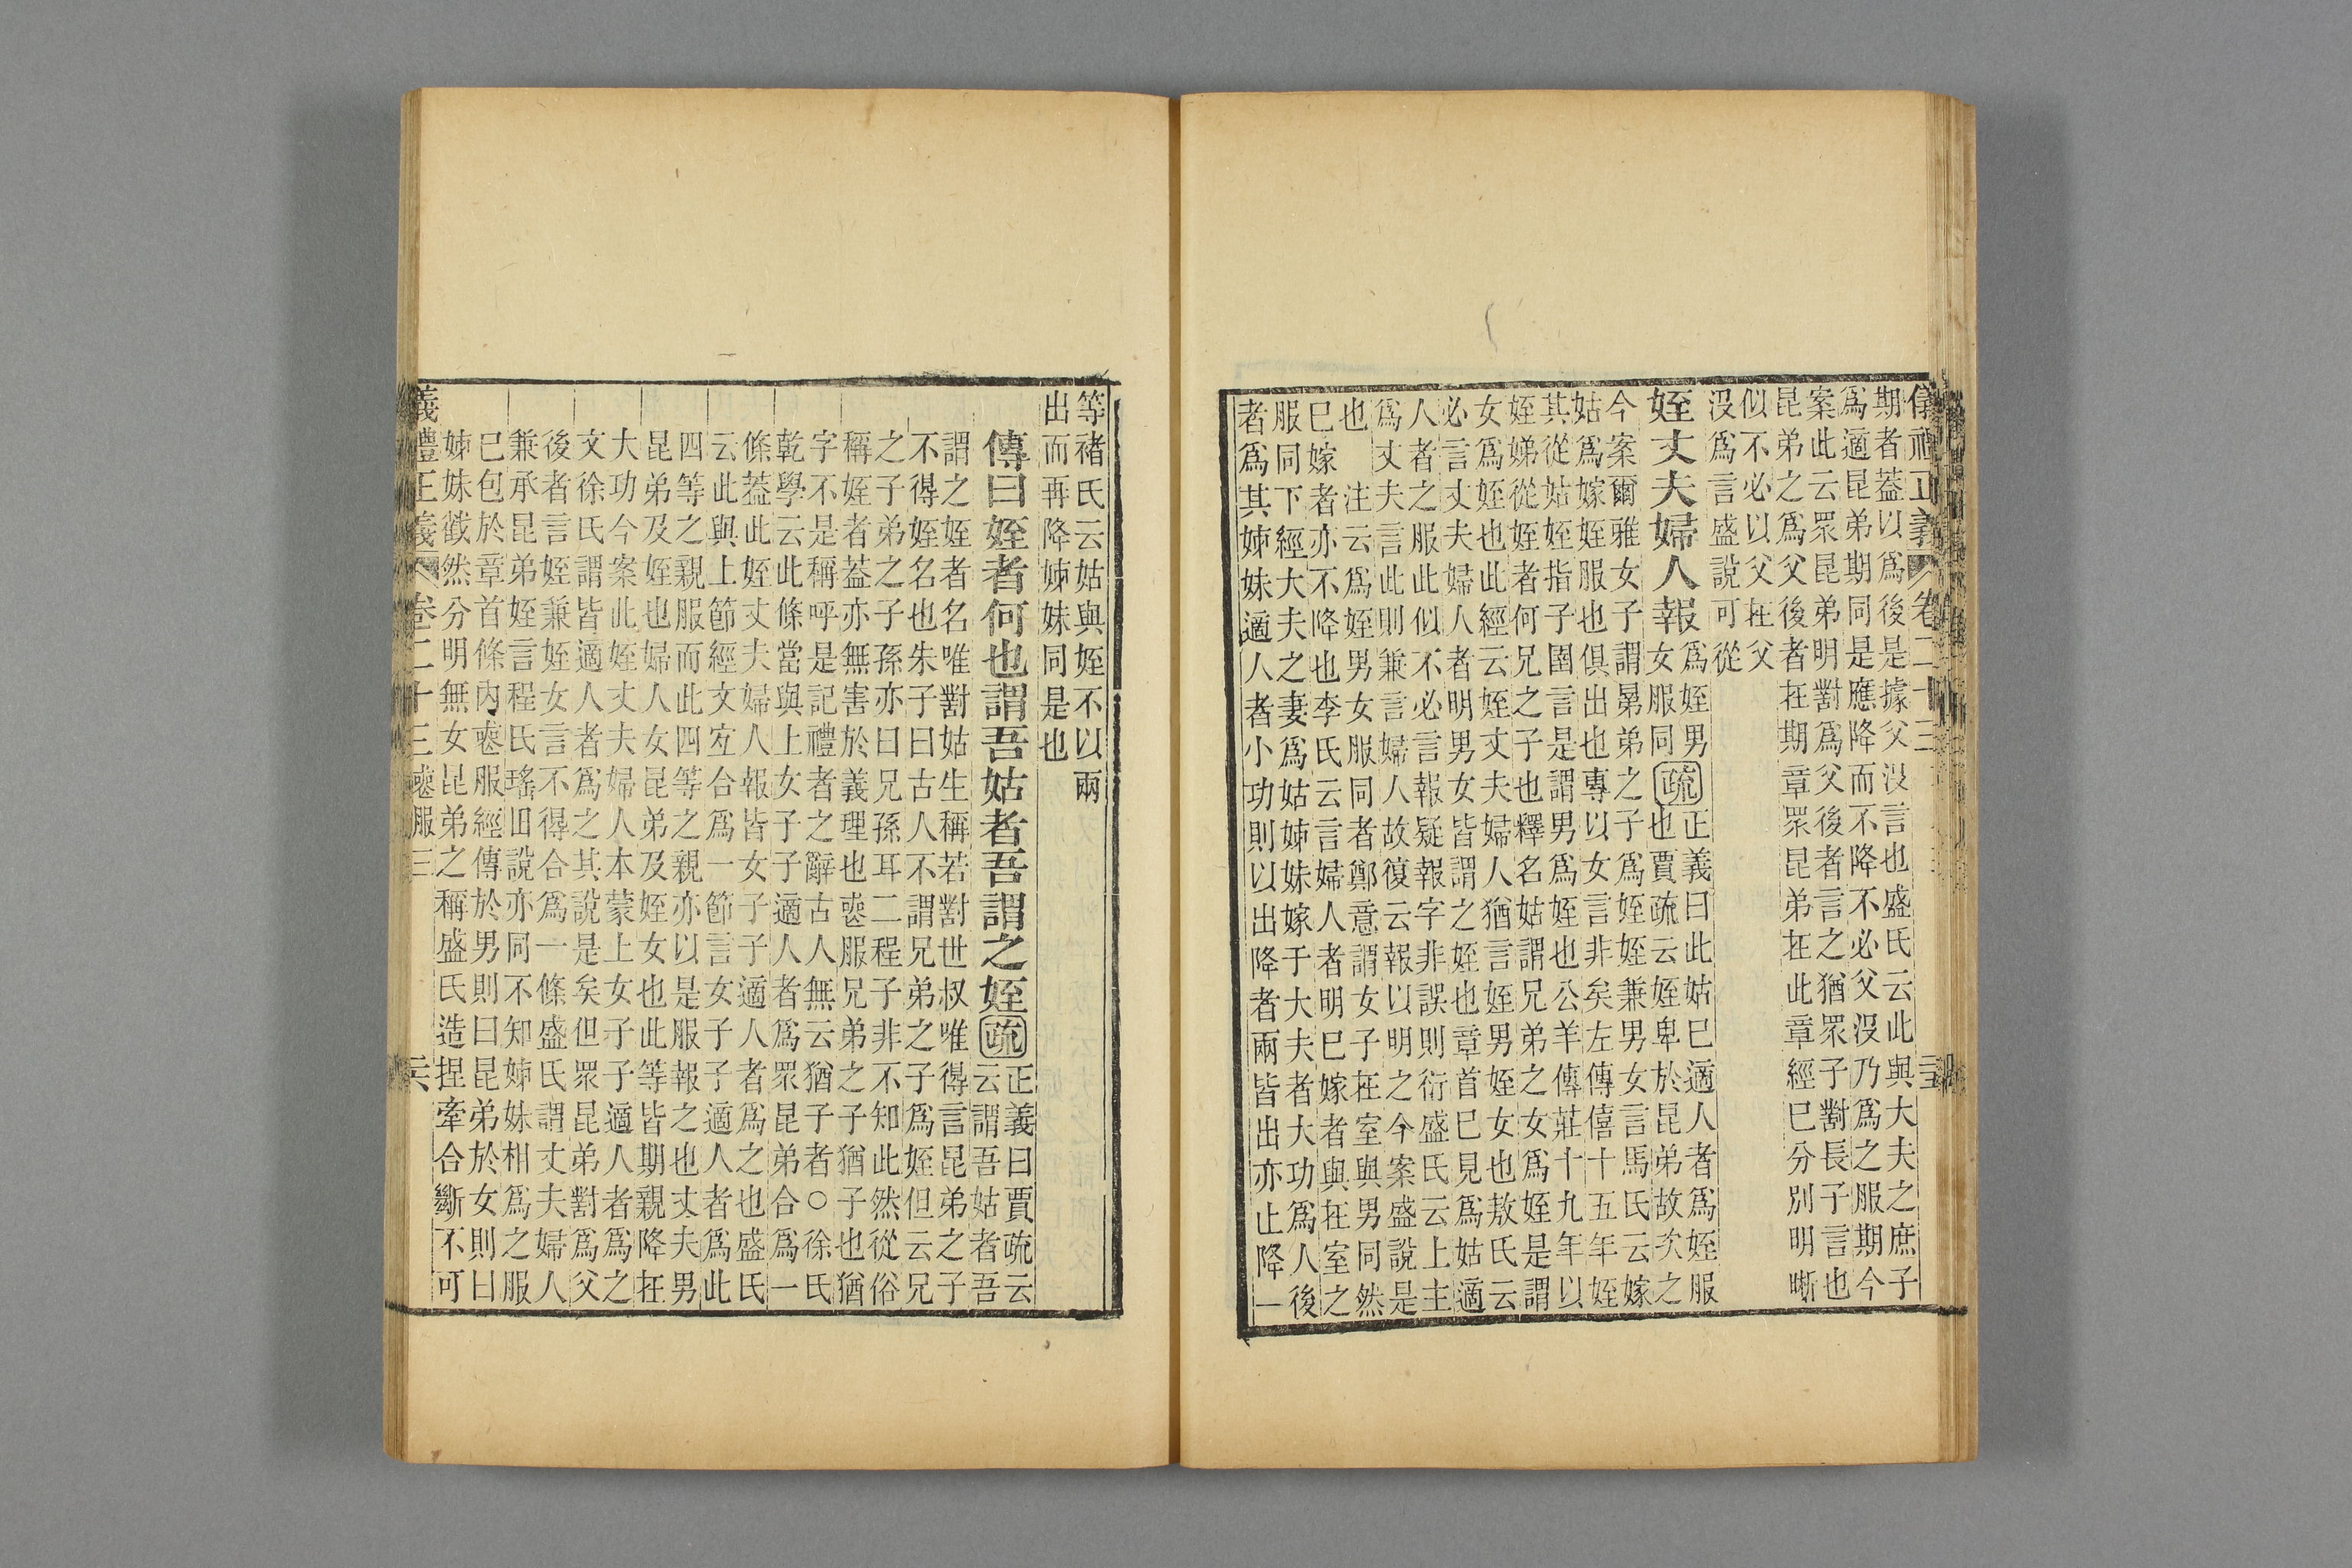 儀禮正義 卷二十三
期者葢以爲後是據父没言也盛氏云此與大夫之庶子
爲適昆弟期同是應降而不降不必父没乃爲之服期今
案此云眾昆弟明對爲父後者言之猶眾子對長子言也
昆弟之爲父後者在期章眾昆弟在此章經已分別明晰
似不必以父在父
没爲言盛說可從
姪丈夫婦人報
爲姪男
女服同
疏
正義曰此姑已適人者爲姪服
也賈疏云姪卑於昆弟故次之
今案爾雅女子謂晜弟之子爲姪姪兼男女言馬氏云嫁
姑爲嫁姪服也俱出也專以女言非矣左傳僖十五年姪
其從姑姪指子圉言是謂男爲姪也公羊傳莊十九年以
姪娣從姪者何兄之子也釋名姑謂兄弟之女爲姪是謂
女爲姪也此經云姪丈夫婦人猶言姪男姪女也敖氏云
必言丈夫婦人者明男女皆謂之姪也章首已見爲姑適
人者之服此似不必言報疑報字非誤則衍盛氏云上主
爲丈夫言此則兼言婦人故復云報以明之今案盛說是
也 注云爲姪男女服同者鄭意謂女子在室與男同然
已嫁者亦不降也李氏云言婦人者明已嫁者與在室之
服同下經大夫之妻爲姑姊妹嫁于大夫者大功爲人後
者爲其姊妹適人者小功則以出降者兩皆出亦止降一
等褚氏云姑與姪不以兩
出而再降姊妹同是也
傳曰姪者何也謂吾姑者吾謂之姪
疏
正義曰賈疏云
云謂吾姑者吾
謂之姪者名唯對姑生稱若對世叔唯得言昆弟之子
不得姪名也朱子曰古人不謂兄弟之子爲姪但云兄
之子弟之子孫亦曰兄孫耳二程子非不知此然從俗
稱姪者葢亦無害於義理也喪服兄弟之子猶子也猶
字不是稱呼是記禮者之辭古人無云猶子者○徐氏
乾學云此條當與上女子子適人者爲眾昆弟合爲一
條葢此姪丈夫婦人報皆女子子適人者爲之也盛氏
云此與上節經文宜合爲一節言女子子適人者爲此
四等之親服而此四等之親亦以是服報之也丈夫男
昆弟及姪也婦人女昆弟及姪女也此等皆期親降在
大功今案此姪丈夫婦人本蒙上女子子適人者爲之
文徐氏謂皆適人者爲之其說是矣但眾昆弟對爲父
後者言姪兼姪女言不得合爲一條盛氏謂丈夫婦人
兼承昆弟姪言程氏瑤田說亦同不知姊妹相爲之服
已包於章首條內喪服經傳於男則曰昆弟於女則曰
姊妹截然分明無女昆弟之稱盛氏造捏牽合斷不可
義禮正義 卷二十三 喪服三